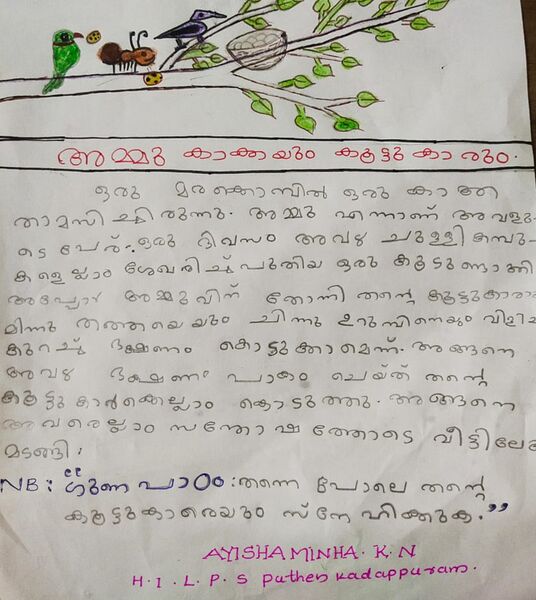 അമ്മു കാക്കയും കൂട്ടുകാരും.
ഒരു മരക്കൊമ്പിൽ ഒരു കാക്ക
താമസിച്ചിരുന്നു. അമ്മു എന്നാണ് അവളു-
ടെ പേര്. ഒരു ദിവസം അവൾ ചുള്ളി കമ്പു-
കളെല്ലാം ശേഖരിച്ച് പുതിയ ഒരു കൂടുണ്ടാക്കി
അപ്പോൾ അമ്മുവിന് തോന്നി തന്റെ കൂട്ടുകാരാ
മിന്നു തത്തയെയും ചിന്നു ഉറുമ്പിനെയും വിളിച്
കുറച്ച് ഭക്ഷണം കൊടുക്കാമെന്ന്. അങ്ങനെ
അവൾ ഭക്ഷണം പാകം ചെയ്ത് തന്റെ
കൂട്ടുകാർക്കെല്ലാം കൊടുത്തു. അങ്ങനെ
അവരെല്ലാം സന്തോഷത്തോടെ വീട്ടിലേക
മടങ്ങി.
NB: "ഗുണപാഠം: തന്നെ പോലെ തന്റെ
കൂട്ടുകാരെയും സ്നേഹിക്കുക."
AYISHA MINHA. K. N
H. I. L. P. S Puthen Kadappuram.